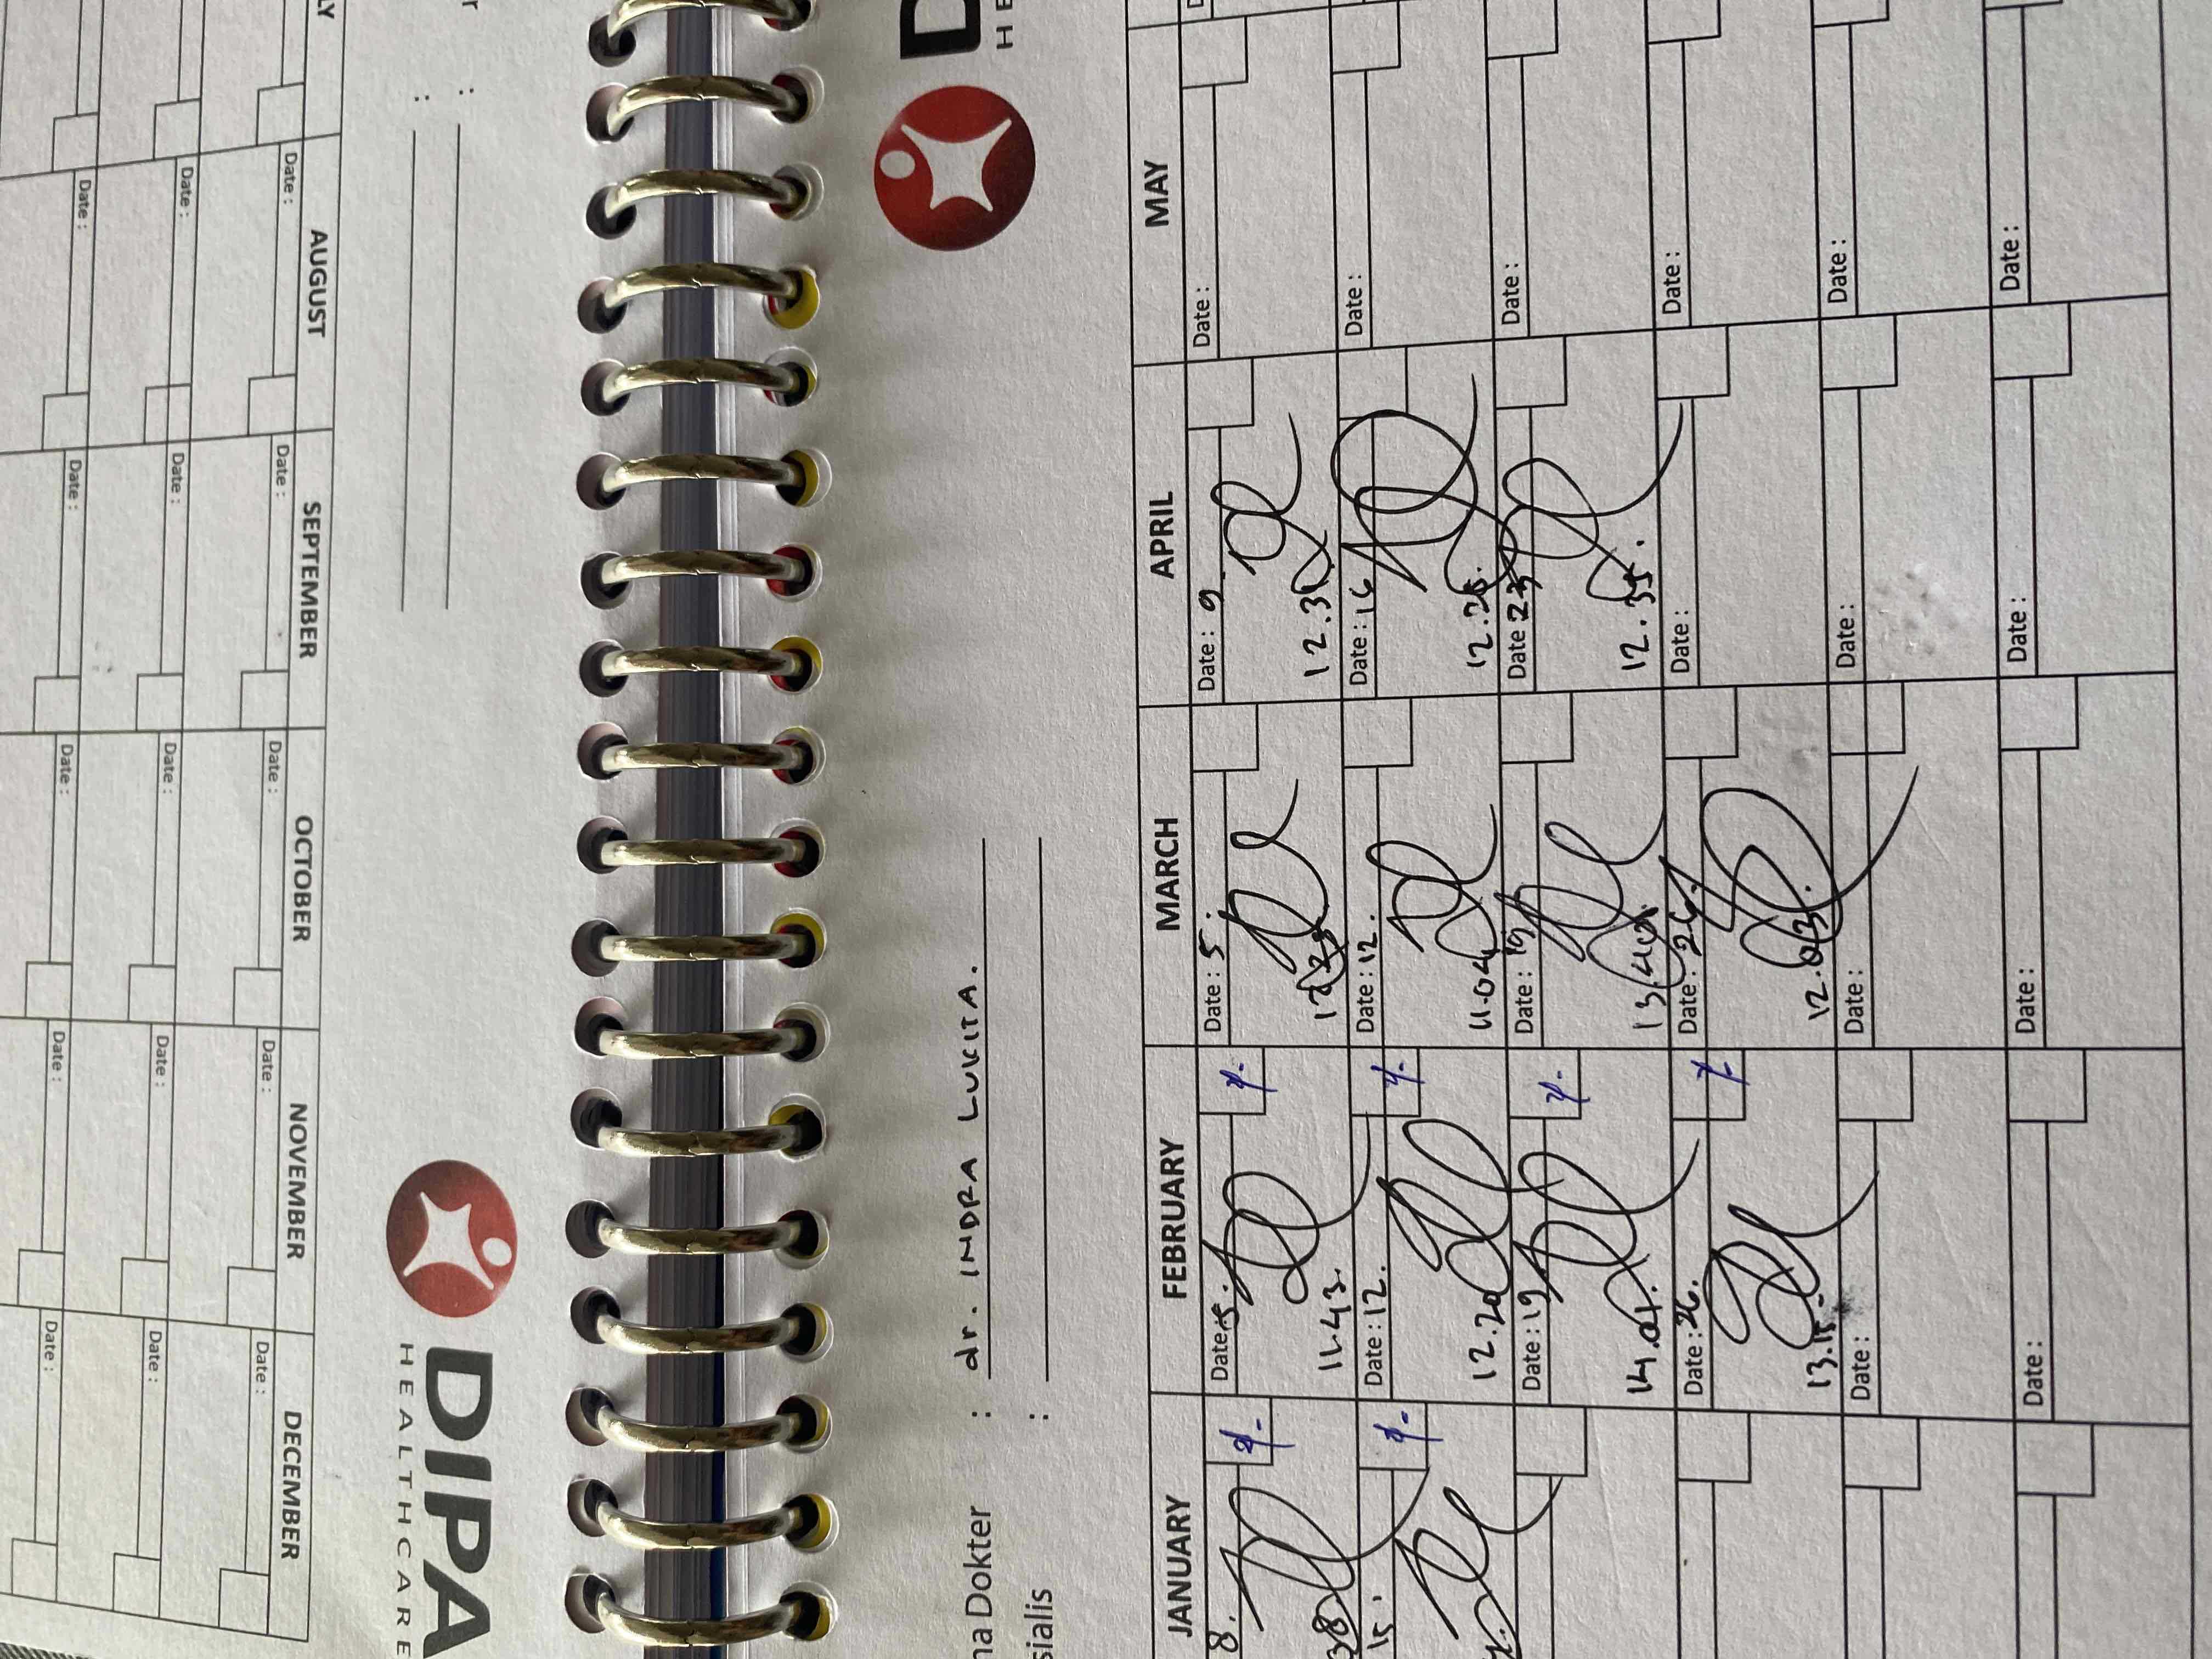 DIPA
HEALTHCARE
AUGUST SEPTEMBER OCTOBER NOVEMBER DECEMBER
Date : Date : Date : Date : Date :
Date : Date : Date : Date : Date :
Date : Date : Date : Date : Date :
Dokter : dr. INDRA LUKITA.
:
JANUARY FEBRUARY MARCH APRIL MAY
8. Date : 5. Date : 5. Date : 9 Date :
38 11.43. 12.3
15. Date : 12. Date : 12. Date : 16 Date :
12.20 11.04 12.25.
Date : 19. Date : 19 Date : 23 Date :
14.01. 13.40. 12.35.
Date : 26. Date : 26. Date : Date :
13.15. 12.03.
Date : Date : Date : Date :
Date : Date : Date : Date :